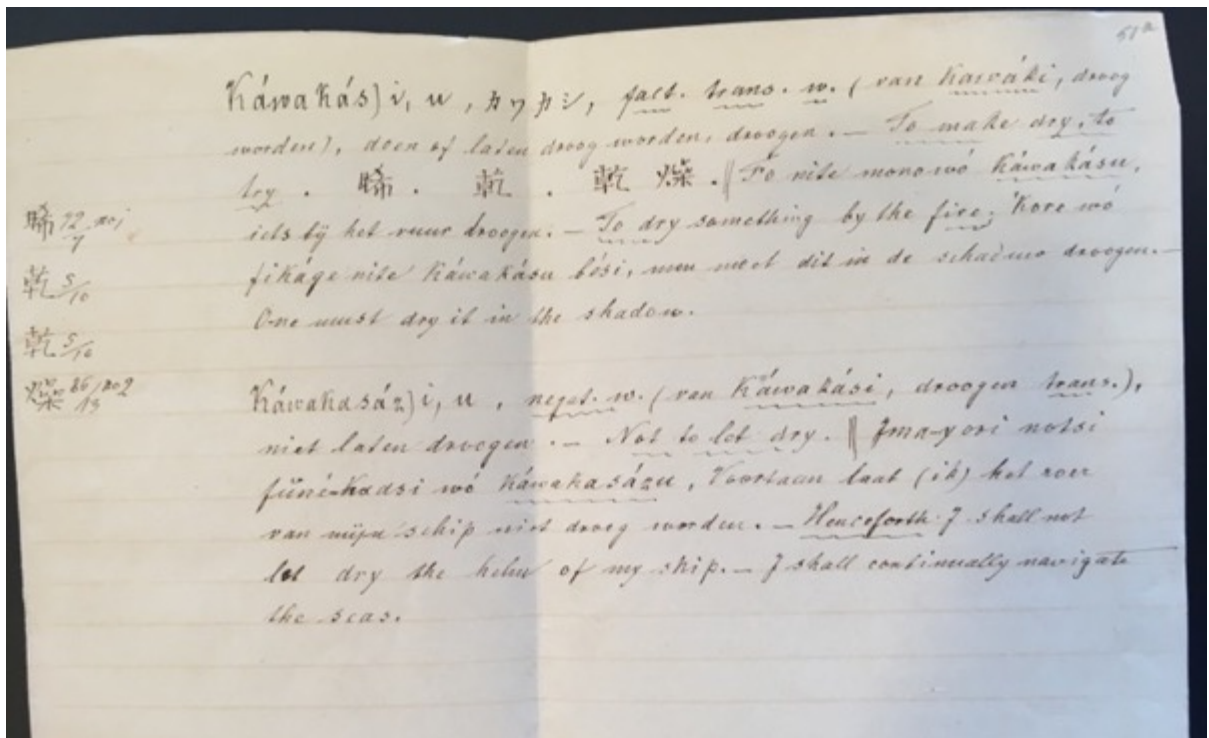 51a
Káwakás) i, u, カワカシ, fact. trans. w. (van Kawáki, droog
worden), doen of laten droog worden, droogen. — To make dry, to
try. 晞. 乾. 乾燥. ‖ Fó nite monowó Káwakásu,
iets bij het vuur droogen. — To dry something by the fire. Kore wó
fikáge nite Káwakásu bési, men moet dit in de schaduw droogen. —
One must dry it in the shadow.
晞 72/7 no1
乾 5/10
乾 5/10
燥 86/13 no2
Káwakasáz) i, u, negat. w. (van Káwakási, droogen trans.),
niet laten droogen. — Not to let dry. ‖ Ima-yori notsi
fúné-Kadsi wó Káwakasázu, Voortaan laat (ik) het roer
van mijn schip niet droog worden. — Henceforth I shall not
let dry the helm of my ship. — I shall continually navigate
the seas.